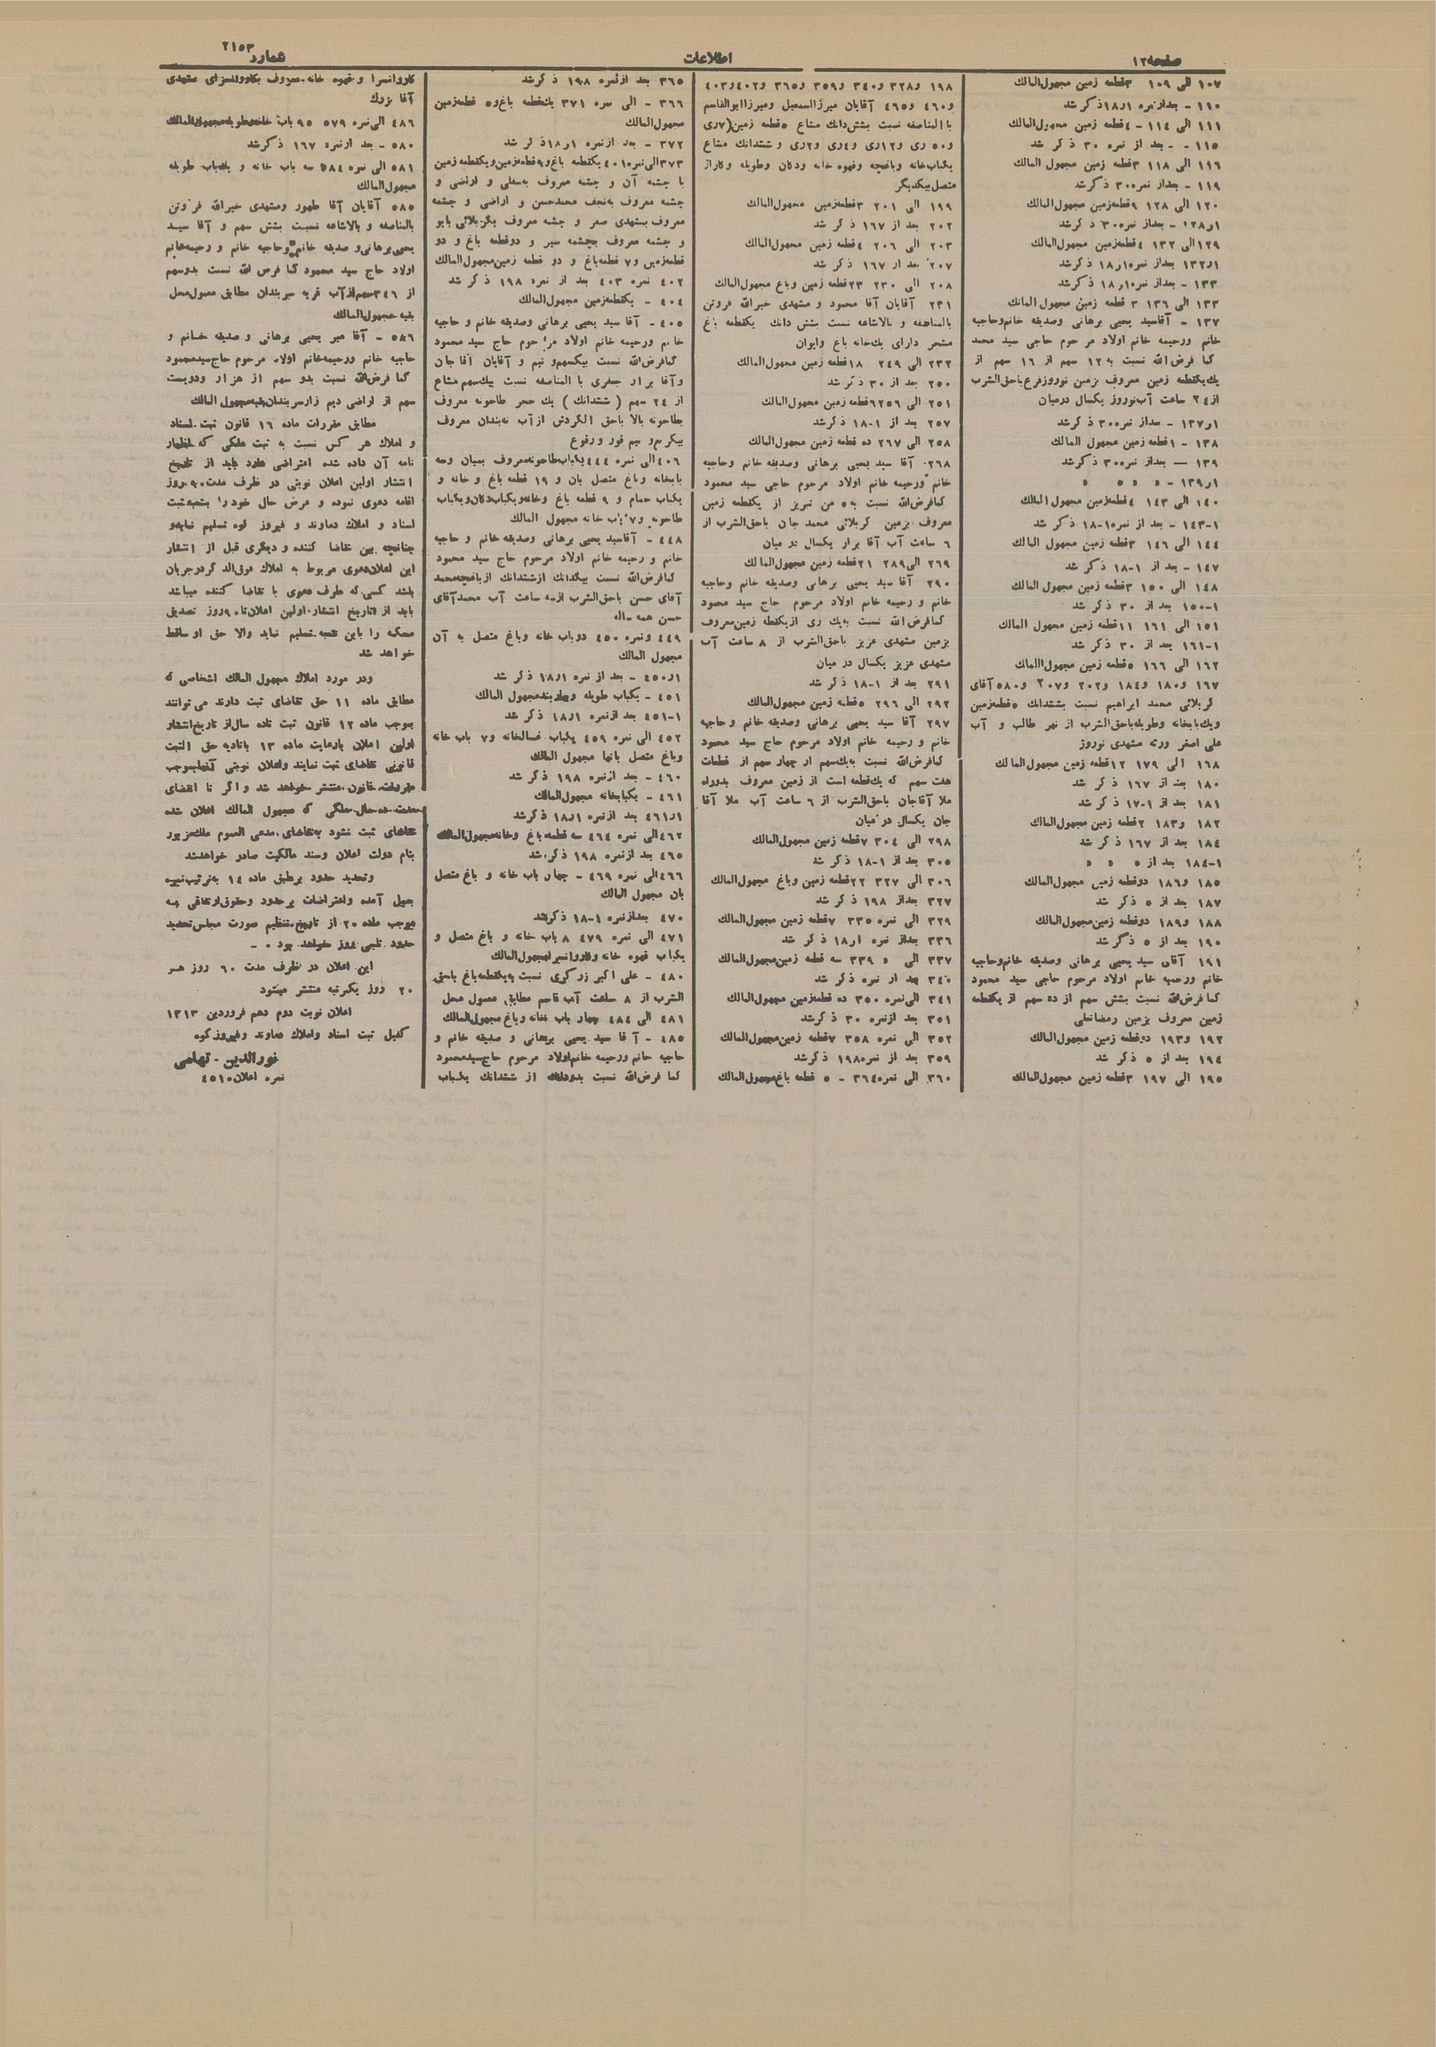 صفحه ۱۲
اطلاعات
شماره ۲۱۵۳
۱۰۷ الی ۱۰۹ ۳قطعه زمین مجهول‌المالك
۱۱۰ - بعداز نمره ۱ر۱۸ ذکر شد
۱۱۱ الی ۱۱۴ - ٤ قطعه زمین مجهول‌المالك
۱۱۵ - بعد از نمره ۳۰ ذکر شد
۱۱۶ الی ۱۱۸ ۳قطعه زمین مجهول المالك
۱۱۹ - بعداز نمره ۳۰ ذکر شد
۱۲۰ الی ۱۲۸ ۹قطعه‌زمین مجهول‌المالك
۱ر۱۲۸ - بعداز نمره ۳۰ ذکر شد
۱۲۹الی ۱۳۲ ٤ قطعه‌زمین مجهول‌المالك
۱ر۱۳۲ بعداز نمره ۱ر۱۸ ذکرشد
۱۳۳ - بعداز نمره ۱ر۱۸ ذکرشد
۱۳۳ الی ۱۳۶ ۳ قطعه زمین مجهول المالك
۱۳۷ - آقاسید یحیی برهانی وصدیقه خانم وحاجیه
خانم ورحیمه خانم اولاد مرحوم حاجی سید محمد
کما فرض الله نسبت به ۱۲ سهم از ۱۶ سهم از
یك‌یکقطعه زمین معروف بزمین نوروزفرع باحق‌الشرب
از۲٤ ساعت آب‌نوروز یکسال درمیان
۱ر۱۳۷ - بعداز نمره ۳۰ ذکر شد
۱۳۸ - ۱قطعه زمین مجهول المالك
۱۳۹ — بعداز نمره ۳۰ ذکر شد
۱ر۱۳۹ - » » »
۱٤۰ الی ۱٤۳ ٤ قطعه‌زمین مجهول المالك
۱-۱٤۳ - بعد از نمره ۱-۱۸ ذکر شد
۱٤٤ الی ۱٤۶ ۳قطعه زمین مجهول المالك
۱٤۷ - بعد از ۱-۱۸ ذکر شد
۱٤۸ الی ۱۵۰ ۳قطعه زمین مجهول المالك
۱-۱۵۰ بعد از ۳۰ ذکر شد
۱۵۱ الی ۱۶۱ ۱۱قطعه زمین مجهول المالك
۱-۱۶۱ بعد از ۳۰ ذکر شد
۱۶۲ الی ۱۶۶ ۵ قطعه زمین مجهول المالك
۱۶۷ و۱۸۰ و۱۸٤ و۲۰۲ و۲۰۷ و۵۸۰ آقای
کربلائی محمد ابراهیم نسبت بششدانك ۵ قطعه‌زمین
ویك‌بابخانه وطویله باحق‌الشرب از نهر طالب و آب
علی اصغر ورثه مشهدی نوروز
۱۶۸ الی ۱۷۹ ۱۲ قطعه زمین مجهول‌المالك
۱۸۰ بعد از ۱۶۷ ذکر شد
۱۸۱ بعد از ۱-۱۷ ذکر شد
۱۸۲ و۱۸۳ ۲قطعه زمین مجهول‌المالك
۱۸٤ بعد از ۱۶۷ ذکر شد
۱-۱۸٤ بعد از » » »
۱۸۵ و۱۸۶ دوقطعه زمین مجهول‌المالك
۱۸۷ بعد از ۵ ذکر شد
۱۸۸ و۱۸۹ دوقطعه زمین‌مجهول‌المالك
۱۹۰ بعد از ۵ ذکر شد
۱۹۱ آقای سید یحیی برهانی وصدیقه خانم وحاجیه
خانم ورحیمه خانم اولاد مرحوم حاج سید محمود
کما فرض‌الله نسبت بشش سهم از ده سهم از یکقطعه
زمین معروف بزمین رمضانعلی
۱۹۲ و۱۹۳ دوقطعه زمین مجهول المالك
۱۹٤ بعد از ۵ ذکر شد
۱۹۵ الی ۱۹۷ ۳قطعه زمین مجهول المالك
۱۹۸ و۳۲۸ و۳٤۰ و۳۵۹ و۳۶۵ و٤۰۲و٤۰۳
و٤۶۰ و٤۶۵ آقایان میرزااسمعیل ومیرزاابوالقاسم
با المناصفه نسبت بشش دانك مشاع ۵ قطعه زمین(۷ری
و۵۰ ری و۱۲ری و٤ری و۲ری و ششدانك مشاع
یکباب‌خانه وباغچه وقهوه خانه ودکان وطویله وکاراژ
متصل بیکدیگر
۱۹۹ الی ۲۰۱ ۳قطعه‌زمین مجهول‌المالك
۲۰۲ بعد از ۱۶۷ ذکر شد
۲۰۳ الی ۲۰۶ ٤ قطعه زمین مجهول‌المالك
۲۰۷ بعد از ۱۶۷ ذکر شد
۲۰۸ الی ۲۳۰ ۲۳قطعه زمین وباغ مجهول‌المالك
۲۳۱ آقایان آقا محمود و مشهدی خیرالله فروتن
بالمناصفه و بالاشاعه نسبت شش دانك یکقطعه باغ
مشجر دارای یك‌خانه باغ وایوان
۲۳۲ الی ۲٤۹ ۱۸قطعه زمین مجهول‌المالك
۲۵۰ بعد از ۳۰ ذکر شد
۲۵۱ الی ۲۵۶ ۶قطعه زمین مجهول‌المالك
۲۵۷ بعد از ۱-۱۸ ذکر شد
۲۵۸ الی ۲۶۷ ده قطعه زمین مجهول المالك
۲۶۸ آقا سید یحیی برهانی وصدیقه خانم وحاجیه
خانم ورحیمه خانم اولاد مرحوم حاجی سید محمود
کمافرض‌الله نسبت به ۵ من تبریز از یکقطعه زمین
معروف بزمین کربلائی محمد جان باحق‌الشرب از
۶ ساعت آب آقا برار یکسال در میان
۲۶۹ الی۲۸۹ ۲۱قطعه زمین مجهول‌المالك
۲۹۰ آقا سید یحیی برهانی وصدیقه خانم وحاجیه
خانم و رحیمه خانم اولاد مرحوم حاج سید محمود
کمافرض‌الله نسبت به‌یك ری ازیکقطعه زمین‌معروف
بزمین مشهدی عزیز باحق‌الشرب از ۸ ساعت آب
مشهدی عزیز یکسال در میان
۲۹۱ بعد از ۱-۱۸ ذکر شد
۲۹۲ الی ۲۹۶ ۵ قطعه زمین مجهول‌المالك
۲۹۷ آقا سید یحیی برهانی وصدیقه خانم وحاجیه
خانم و رحیمه خانم اولاد مرحوم حاج سید محمود
کمافرض‌الله نسبت به‌یك‌سهم از چهار سهم از قطعات
هفت سهم که یك‌قطعه است از زمین معروف بدوراه
ملا آقاجان باحق‌الشرب از ۶ ساعت آب ملا آقا
جان یکسال در میان
۲۹۸ الی ۳۰٤ ۷قطعه زمین مجهول‌المالك
۳۰۵ بعد از ۱-۱۸ ذکر شد
۳۰۶ الی ۳۲۷ ۲۲قطعه زمین وباغ مجهول‌المالك
۳۲۷ بعداز ۱۹۸ ذکر شد
۳۲۹ الی نمره ۳۳۵ ۷قطعه زمین مجهول‌المالك
۳۳۶ بعداز نمره ۱ر۱۸ ذکر شد
۳۳۷ الی » ۳۳۹ سه قطعه زمین‌مجهول‌المالك
۳٤۰ بعد از نمره ذکر شد
۳٤۱ الی‌نمره ۳۵۰ ده قطعه‌زمین مجهول‌المالك
۳۵۱ بعد ازنمره ۳۰ ذکرشد
۳۵۲ الی نمره ۳۵۸ ۷قطعه زمین‌مجهول‌المالك
۳۵۹ بعد از نمره ۱۹۸ ذکرشد
۳۶۰ الی نمره۳۶٤ - ۵ قطعه باغ‌مجهول‌المالك
۳۶۵ بعد ازنمره ۱۹۸ ذکرشد
۳۶۶ - الی نمره ۳۷۱ یك‌قطعه باغ‌و۵ قطعه‌زمین
مجهول‌المالك
۳۷۲- بعد ازنمره ۱ر۱۸ ذکر شد
۳۷۳الی‌نمره ٤۰۱ یکقطعه باغ‌و۹قطعه‌زمین‌ویکقطعه زمین
با چشمه آن و چشمه معروف به‌سفلی و اراضی و
چشمه معروف به‌نجف محمدحسن و اراضی و چشمه
معروف بمشهدی صفر و چشمه معروف بکربلائی بابو
و چشمه معروف بچشمه سیر و دوقطعه باغ و دو
قطعه‌زمین و۷ قطعه‌باغ و دو قطعه زمین‌مجهول‌المالك
٤۰۲ نمره ٤۰۳ بعد از نمره ۱۹۸ ذکر شد
٤۰٤ - یکقطعه‌زمین مجهول‌المالك
٤۰۵ - آقا سید یحیی برهانی وصدیقه خانم و حاجیه
خانم و رحیمه خانم اولاد مرحوم حاج سید محمود
کمافرض‌الله نسبت بیکسهم و نیم و آقایان آقا جان
وآقا برار جعفری با المناصفه نسبت بیك‌سهم مشاع
از ۲٤ سهم (ششدانك) یك حجر طاحونه معروف
بطاحونه بالا باحق الگردش از آب نه‌بندان معروف
بیکرم و نیم فور و رفوع
٤۰۶ الی نمره ٤٤٤ یکباب‌طاحونه‌معروف بمیان وسه
بابخانه وباغ متصل بان و ۱۹ قطعه باغ و خانه و
یکباب حمام و ۹ قطعه باغ وخانه‌ویکباب‌دکان‌ویکباب
طاحونه و۷ باب خانه مجهول المالك
٤٤۸ - آقاسید یحیی برهانی وصدیقه خانم و حاجیه
خانم و رحیمه خانم اولاد مرحوم حاج سید محمود
کمافرض‌الله نسبت بیکدانك ازششدانك ازباغچه‌محمد
آقای حسن باحق‌الشرب از ساعت آب محمدآقای
حسن همه ساله
٤٤۹ ونمره ٤۵۰ دوباب خانه وباغ متصل به آن
مجهول المالك
۱ر٤۵۰ - بعد از نمره ۱ر۱۸ ذکر شد
٤۵۱ - یکباب طویله وبهاربندمجهول المالك
۱-٤۵۱ بعد ازنمره ۱ر۱۸ ذکر شد
٤۵۲ الی نمره ٤۵۹ یکباب غسالخانه و۷ باب خانه
وباغ متصل بانها مجهول المالك
٤۶۰ - بعد ازنمره ۱۹۸ ذکر شد
٤۶۱ - یکبابخانه مجهول‌المالك
۱ر٤۶۱ بعد ازنمره ۱ر۱۸ ذکرشد
٤۶۲الی نمره ٤۶٤ سه قطعه باغ وخانه‌مجهول‌المالك
٤۶۵ بعد ازنمره ۱۹۸ ذکرشد
٤۶۶الی نمره ٤۶۹ - چهار باب خانه و باغ متصل
بان مجهول المالك
٤۷۰ بعدازنمره ۱-۱۸ ذکرشد
٤۷۱ الی نمره ٤۷۹ ۸ باب خانه و باغ متصل و
یکباب قهوه خانه وکاروانسرامجهول‌المالك
٤۸۰ - علی اکبر زرگری نسبت به‌یکقطعه‌باغ باحق
الشرب از ۸ ساعت آب قاسم مطابق معمول محل
٤۸۱ الی ٤۸٤ چهار باب خانه وباغ مجهول‌المالك
٤۸۵ - آقا سید یحیی برهانی و صدیقه خانم و
حاجیه خانم ورحیمه خانم‌اولاد مرحوم حاج‌سیدمحمود
کما فرض‌الله نسبت بدودانك از ششدانك یکباب
کاروانسرا و قهوه خانه معروف بکاروانسرای مشهدی
آقا بزرك
٤۸۶ الی‌نمره ۵۷۹ ۹۵ باب خانه‌وطویله‌مجهول‌المالك
۵۸۰ - بعد ازنمره ۱۶۷ ذکرشد
۵۸۱ الی نمره ۵۸٤ سه باب خانه و یك‌باب طویله
مجهول‌المالك
۵۸۵ آقایان آقا طهور ومشهدی خیرالله فروتن
بالمناصفه و بالاشاعه نسبت بشش سهم و آقا سید
یحیی برهانی‌و صدیقه خانم‌وحاجیه خانم و رحیمه‌خانم
اولاد حاج سید محمود کما فرض الله نسبت بدوسهم
از ۳٤۶سهم‌ازآب قریه سربندان مطابق معمول‌محل
بقیه مجهول‌المالك
۵۸۶ - آقا میر یحیی برهانی و صدیقه خانم و
حاجیه خانم ورحیمه‌خانم اولاد مرحوم حاج‌سیدمحمود
کما فرض‌الله نسبت بدو سهم از هزار ودویست
سهم از اراضی دیم زارسربندان‌بقیه‌مجهول المالك
مطابق مقررات ماده ۱۶ قانون ثبت اسناد
و املاك هر کس نسبت به ثبت ملکی که اظهار
نامه آن داده شده اعتراضی دارد باید از تاریخ
انتشار اولین اعلان نوبتی در ظرف مدت ۹۰ روز
اقامه دعوی نموده و عرض حال خود را بشعبه‌ثبت
اسناد و املاك دماوند و فیروز کوه تسلیم نماید‌و
چنانچه بین تقاضا کننده و دیگری قبل از انتشار
این اعلان‌دعوی مربوط به املاك فوق‌الذکردرجریان
باشد کسی که طرف دعوی با تقاضا کننده میباشد
باید از تاریخ انتشار اولین اعلان‌تا ۹۰روز تصدیق
محکمه را باین شعبه تسلیم نماید والا حق او ساقط
خواهد شد
ودر مورد املاك مجهول المالك اشخاصی که
مطابق ماده ۱۱ حق تقاضای ثبت دارند می توانند
بموجب ماده ۱۲ قانون ثبت تاده سال‌از تاریخ‌انتشار
اولین اعلان بارعایت ماده ۱۳ باتادیه حق الثبت
قانونی تقاضای ثبت نمایند واعلان نوبتی آنهابموجب
مقررات قانون منتشر خواهد شد و اگر تا انقضای
مدت ده سال ملکی که مجهول المالك اعلان شده
تقاضای ثبت نشود به‌تقاضای مدعی العموم ملك‌مزبور
بنام دولت اعلان وسند مالکیت صادر خواهدشد
وتحدید حدود برطبق ماده ۱٤ به‌ترتیب‌نمره
بعمل آمده واعتراضات برحدود وحقوق‌ارتفاقی به
موجب ماده ۲۰ از تاریخ تنظیم صورت مجلس‌تحدید
حدود تاسی روز خواهد بود ۰ -
این اعلان در ظرف مدت ۶۰ روز هر
۲۰ روز یکمرتبه منتشر میشود
اعلان نوبت دوم دهم فروردین ۱۳۱۳
کفیل ثبت اسناد واملاك دماوند وفیروزکوه
نورالدین - تهامی
نمره اعلان ٤۵۱۰